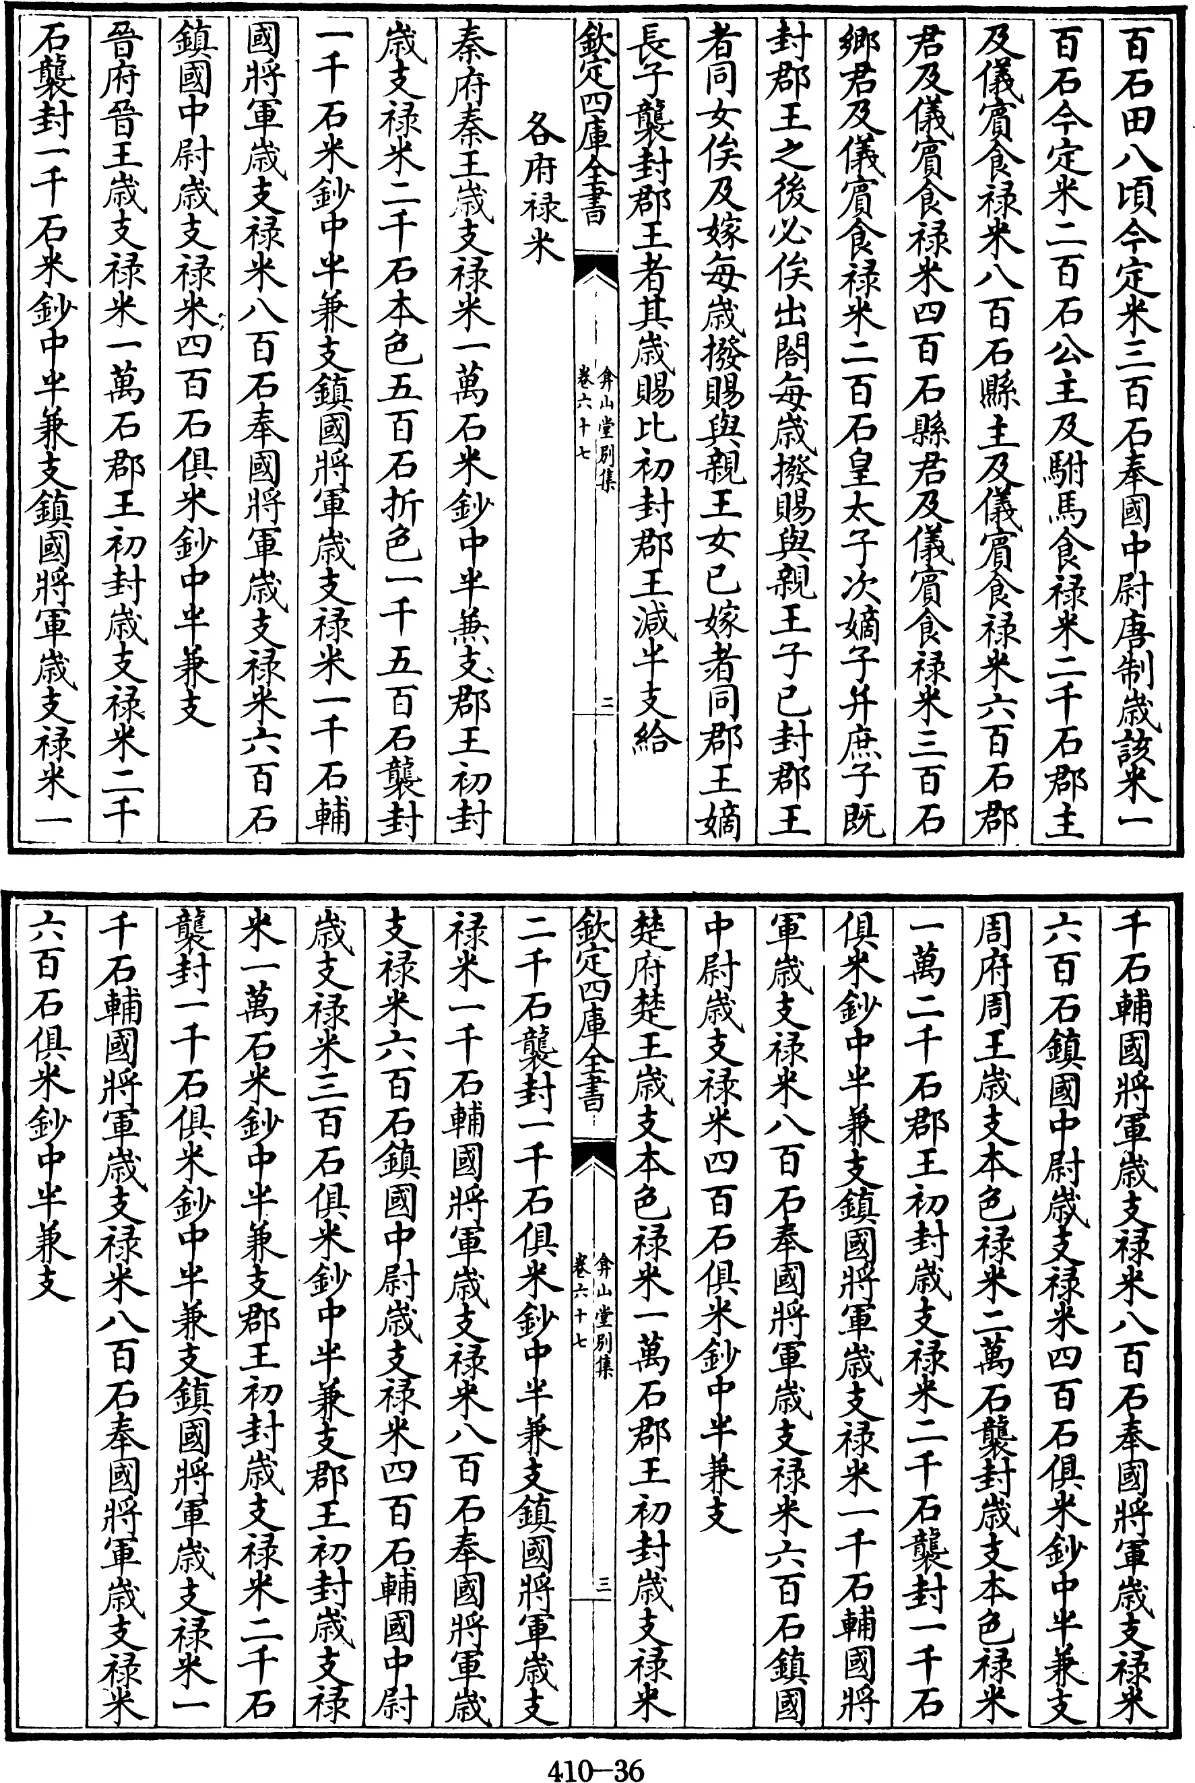 百石田八頃今定米三百石奉國中尉唐制歲該米一
百石今定米二百石公主及駙馬食禄米二千石郡主
及儀賓食禄米八百石縣主及儀賓食禄米六百石郡
君及儀賓食禄米四百石縣君及儀賓食禄米三百石
鄉君及儀賓食禄米二百石皇太子次嫡子并庶子既
封郡王之後必俟出閤每歲撥賜與親王子已封郡王
者同女俟及嫁每歲撥賜與親王女已嫁者同郡王嫡
長子襲封郡王者其歲賜比初封郡王減半支給
欽定四庫全書
弇山堂別集
卷六十七
二
各府禄米
秦府秦王歲支禄米一萬石米鈔中半兼支郡王初封
歲支禄米二千石本色五百石折色一千五百石襲封
一千石米鈔中半兼支鎮國將軍歲支禄米一千石輔
國將軍歲支禄米八百石奉國將軍歲支禄米六百石
鎮國中尉歲支禄米四百石俱米鈔中半兼支
晉府晉王歲支禄米一萬石郡王初封歲支禄米二千
石襲封一千石米鈔中半兼支鎮國將軍歲支禄米一
千石輔國將軍歲支禄米八百石奉國將軍歲支禄米
六百石鎮國中尉歲支禄米四百石俱米鈔中半兼支
周府周王歲支本色禄米二萬石襲封歲支本色禄米
一萬二千石郡王初封歲支禄米二千石襲封一千石
俱米鈔中半兼支鎮國將軍歲支禄米一千石輔國將
軍歲支禄米八百石奉國將軍歲支禄米六百石鎮國
中尉歲支禄米四百石俱米鈔中半兼支
楚府楚王歲支本色禄米一萬石郡王初封歲支禄米
欽定四庫全書
弇山堂別集
卷六十七
三
二千石襲封一千石俱米鈔中半兼支鎮國將軍歲支
禄米一千石輔國將軍歲支禄米八百石奉國將軍歲
支禄米六百石鎮國中尉歲支禄米四百石輔國中尉
歲支禄米三百石俱米鈔中半兼支郡王初封歲支禄
米一萬石米鈔中半兼支郡王初封歲支禄米二千石
襲封一千石俱米鈔中半兼支鎮國將軍歲支禄米一
千石輔國將軍歲支禄米八百石奉國將軍歲支禄米
六百石俱米鈔中半兼支
410—36